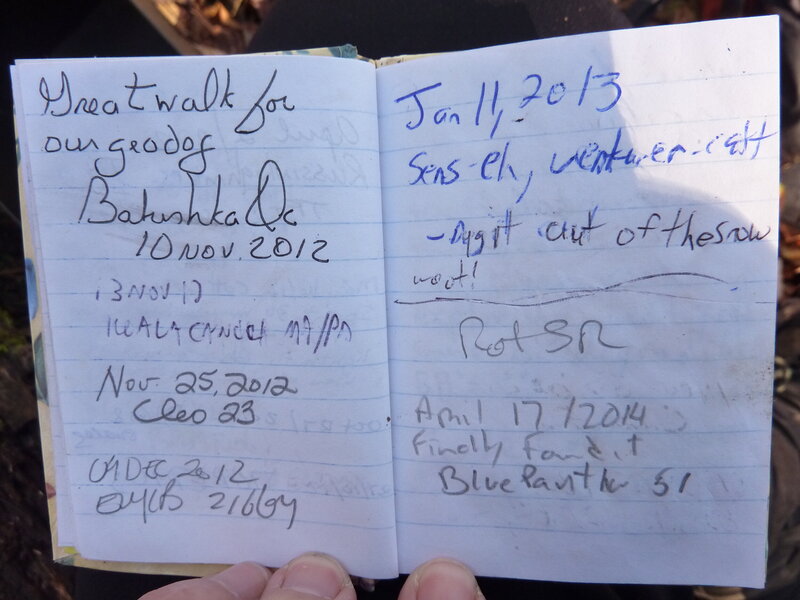 Great walk for
our geodog
Batushka Qc
10 NOV. 2012
13 NOV 12
MA/PA
Nov 25, 2012
Cleo 23
01 DEC 2012
Jan 11, 2013
Sens-eh, venturer-catt
- Dug it out of the snow
woot!
RotSR
April 17/2014
Finally found it
Blue Panther 51